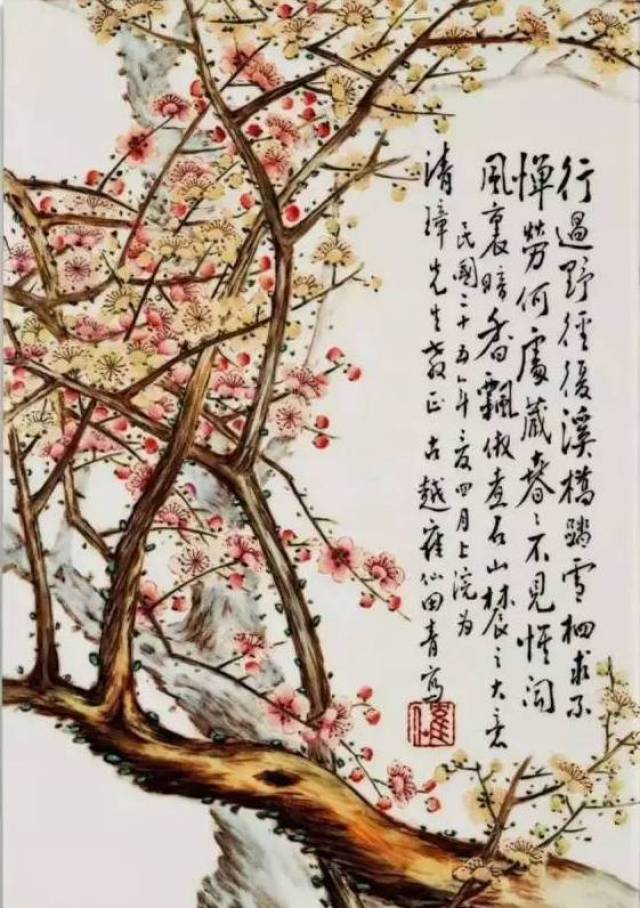 行過野徑復溪橋踏雪相求不
憚勞何處藏春々不見惟聞
風裏暗香飄倣煮石山農之大意
民國二十五年四月上浣为
清璋先生教正古越隺仙田青寫